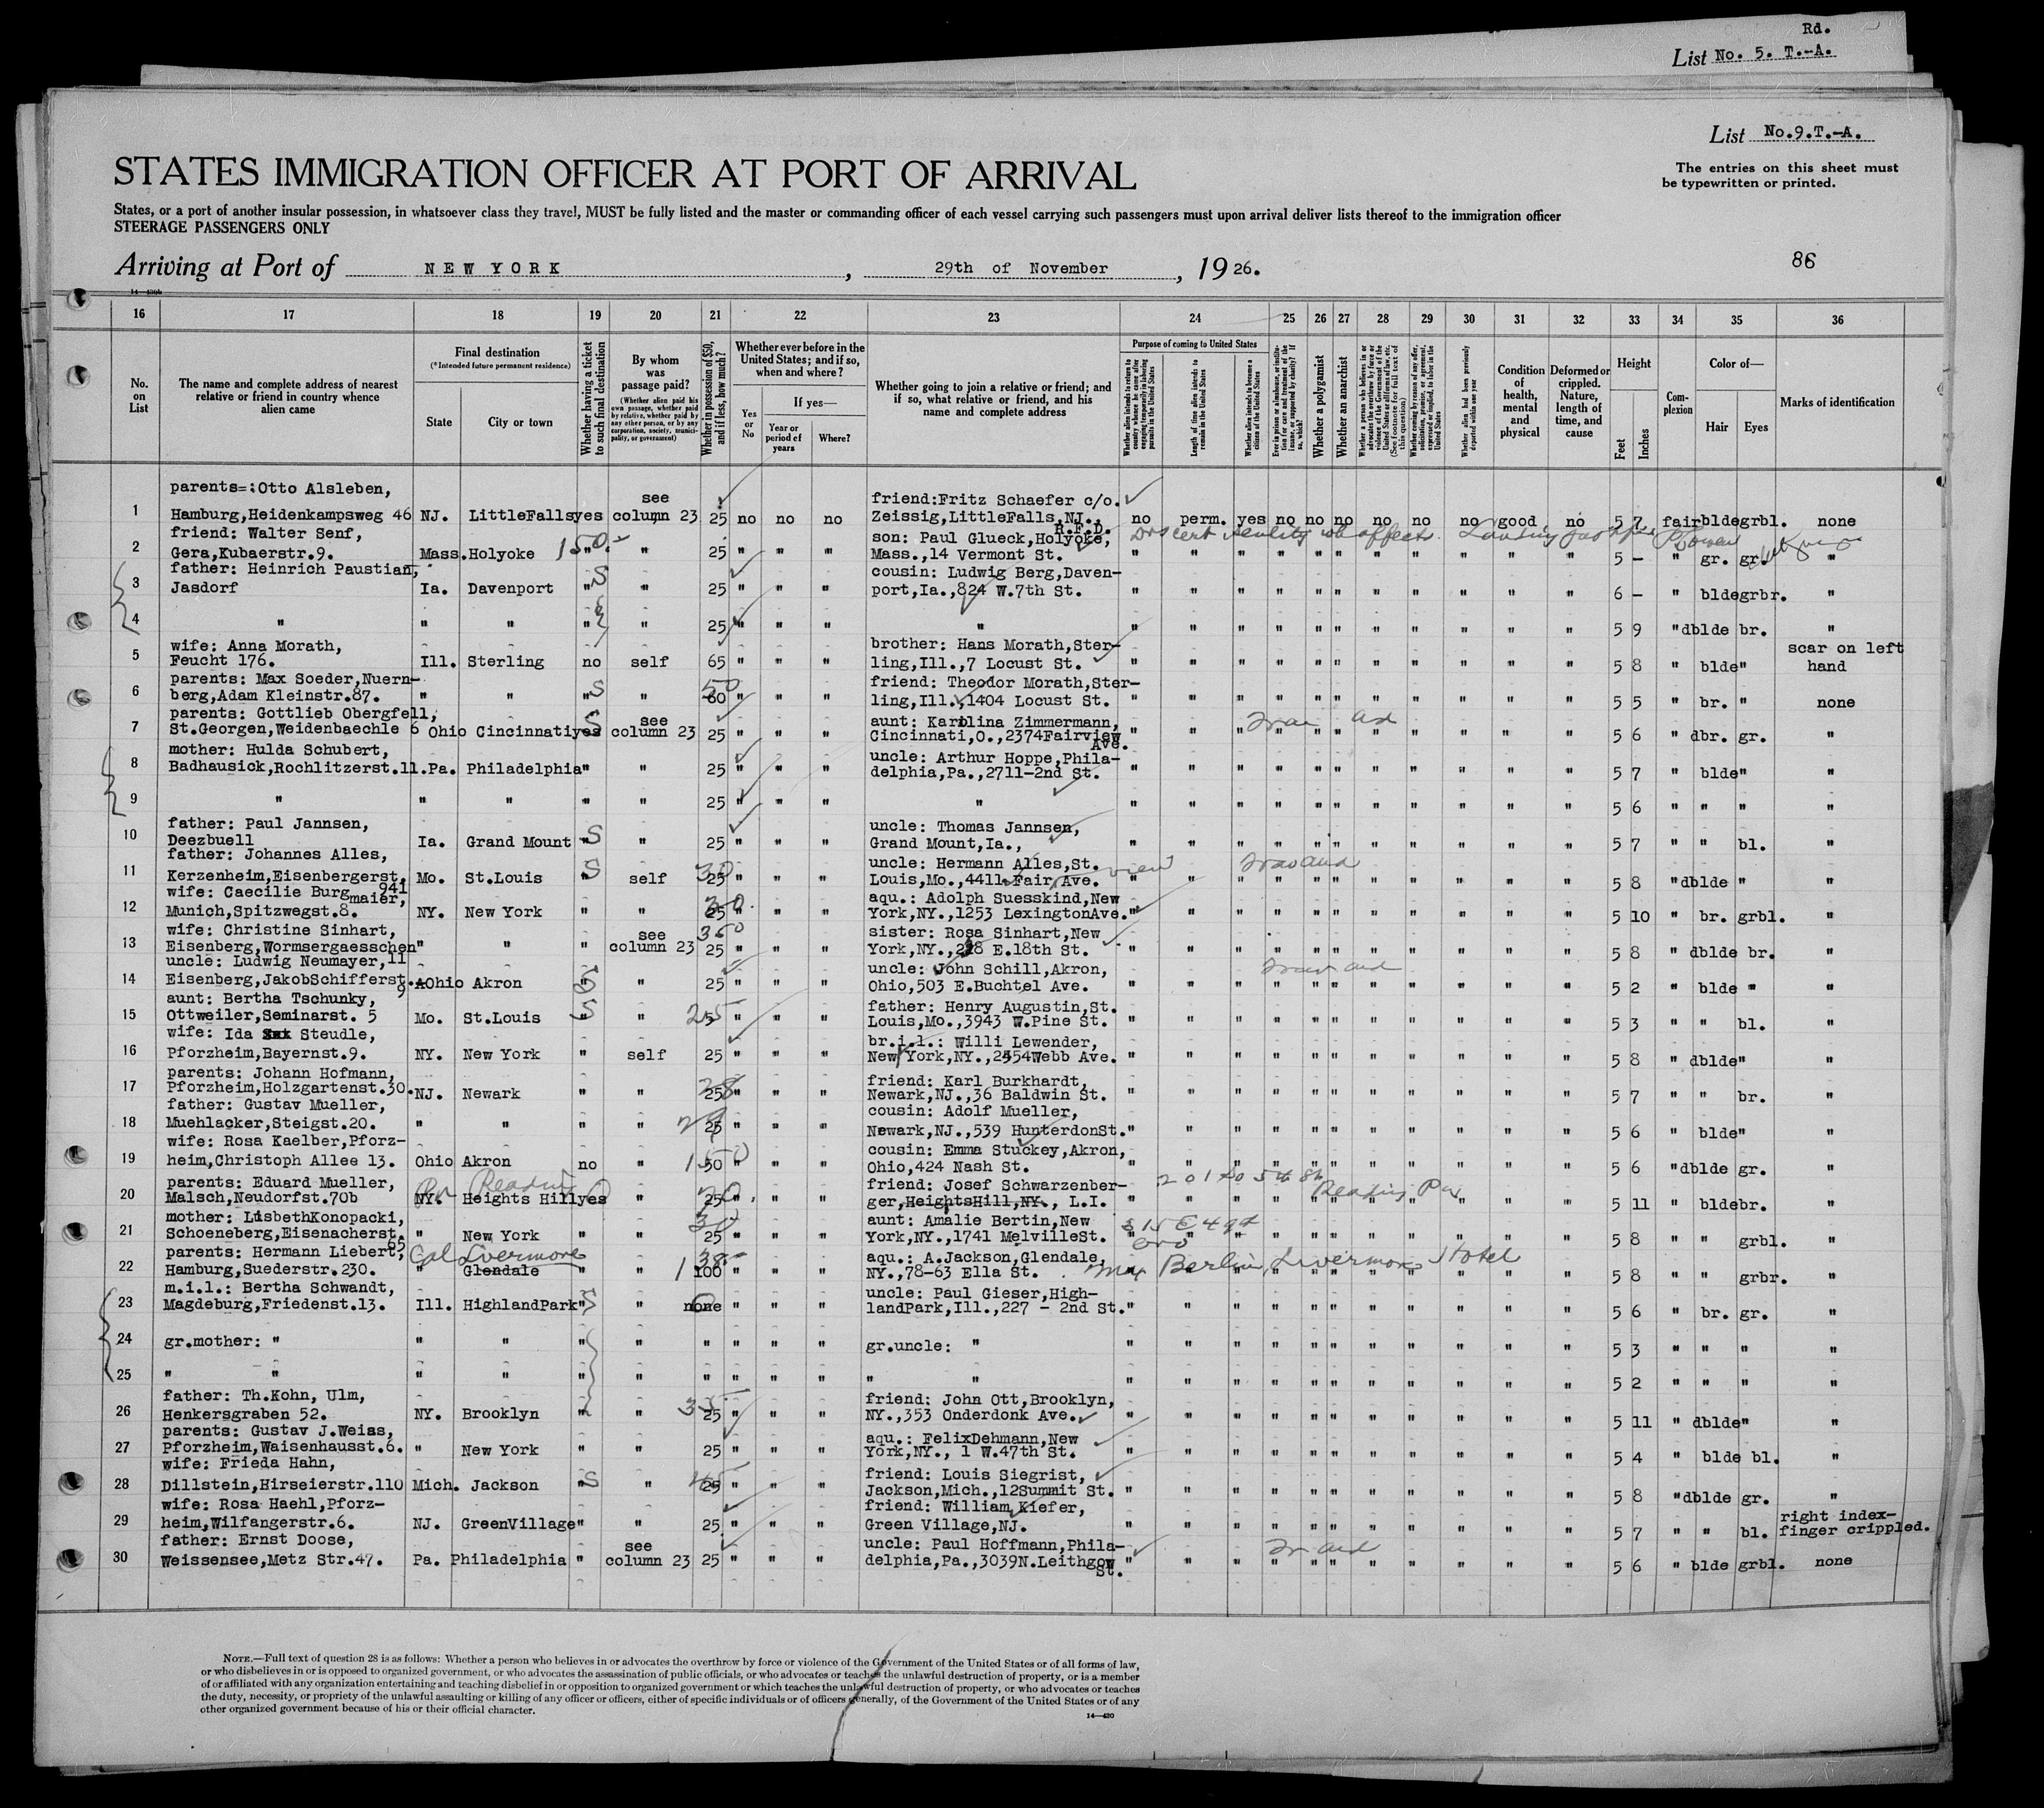 Rd.
List No. 5. T.-A.
List No.9.T.-A.
STATES IMMIGRATION OFFICER AT PORT OF ARRIVAL
The entries on this sheet must
be typewritten or printed.
States, or a port of another insular possession, in whatsoever class they travel, MUST be fully listed and the master or commanding officer of each vessel carrying such passengers must upon arrival deliver lists thereof to the immigration officer
STEERAGE PASSENGERS ONLY
Arriving at Port of NEW YORK, 29th of November, 1926.
86
16 17 18 19 20 21 22 23 24 25 26 27 28 29 30 31 32 33 34 35 36
No. on List
The name and complete address of nearest relative or friend in country whence alien came
Final destination
(*Intended future permanent residence)
State
City or town
Whether having a ticket to such final destination
By whom was passage paid?
(Whether alien paid his own passage, whether paid by relative, whether paid by any other person, or by any corporation, society, municipality, or government)
Whether in possession of $50, and if less, how much?
Whether ever before in the United States; and if so, when and where?
Yes or No
If yes—
Year or period of years
Where?
Whether going to join a relative or friend; and if so, what relative or friend, and his name and complete address
Purpose of coming to United States
Whether a polygamist
Whether an anarchist
Condition of health, mental and physical
Deformed or crippled. Nature, length of time, and cause
Height
Feet
Inches
Complexion
Color of—
Hair
Eyes
Marks of identification
1 parents=:Otto Alsleben, Hamburg,Heidenkampsweg 46 NJ. LittleFalls yes see column 23 25 no no no friend:Fritz Schaefer c/o. Zeissig,LittleFalls,NJ., R.F.D. no perm. yes no no no no no no good no 5 7 fair blde grbl. none
2 friend: Walter Senf, Gera,Kubaerstr.9. Mass. Holyoke " " 25 " " " son: Paul Glueck,Holyoke, Mass.,14 Vermont St. " " " " " " " " " " " 5 – " gr. gr. "
3 father: Heinrich Paustian, Jasdorf Ia. Davenport " " 25 " " " cousin: Ludwig Berg,Davenport,Ia.,824 W.7th St. " " " " " " " " " " " 6 – " blde grbr. "
4 " " " " " 25 " " " " " " " " " " " " " " " 5 9 " dblde br. "
5 wife: Anna Morath, Feucht 176. Ill. Sterling no self 65 " " " brother: Hans Morath,Sterling,Ill.,7 Locust St. " " " " " " " " " " " 5 8 " blde " scar on left hand
6 parents: Max Soeder,Nuernberg,Adam Kleinstr.87. " " " " 60 50 " " " friend: Theodor Morath,Sterling,Ill.,1404 Locust St. " " " " " " " " " " " 5 5 " br. " none
7 parents: Gottlieb Obergfell, St.Georgen,Weidenbaechle 6 Ohio Cincinnati yes see column 23 25 " " " aunt: Karolina Zimmermann, Cincinnati,O.,2374Fairview Ave. " " " " " " " " " " " 5 6 " dbr. gr. "
8 mother: Hulda Schubert, Badhausick,Rochlitzerst.11. Pa. Philadelphia " " 25 " " " uncle: Arthur Hoppe,Philadelphia,Pa.,2711-2nd St. " " " " " " " " " " " 5 7 " blde " "
9 " " " " " 25 " " " " " " " " " " " " " " " 5 6 " " " "
10 father: Paul Jannsen, Deezbuell Ia. Grand Mount " " 25 " " " uncle: Thomas Jannsen, Grand Mount,Ia., " " " " " " " " " " " 5 7 " " bl. "
11 father: Johannes Alles, Kerzenheim,Eisenbergerst. 941 Mo. St.Louis " self 25 30 " " " uncle: Hermann Alles,St. Louis,Mo.,4411 Fair Ave. view " " " " " " " " " " " 5 8 " dblde " "
12 wife: Caecilie Burgmaier, Munich,Spitzwegst.8. NY. New York " " 25 30 " " " aqu.: Adolph Suesskind,New York,NY.,1253 LexingtonAve. " " " " " " " " " " " 5 10 " br. grbl. "
13 wife: Christine Sinhart, Eisenberg,Wormsergaesschen 11 " " " see column 23 25 " " " sister: Rosa Sinhart,New York,NY.,218 E.18th St. " " " " " " " " " " " 5 8 " dblde br. "
14 uncle: Ludwig Neumayer, Eisenberg,JakobSchifferst. 9 Ohio Akron " " 25 " " " uncle: John Schill,Akron, Ohio,503 E.Buchtel Ave. " " " " " " " " " " " 5 2 " blde " "
15 aunt: Bertha Tschunky, Ottweiler,Seminarst. 5 Mo. St.Louis " " 5 25 " " " father: Henry Augustin,St. Louis,Mo.,3943 W.Pine St. " " " " " " " " " " " 5 3 " " bl. "
16 wife: Ida Steudle, Pforzheim,Bayernst.9. NY. New York " self 25 " " " br.i.l.: Willi Lewender, New York,NY.,2454Webb Ave. " " " " " " " " " " " 5 8 " dblde " "
17 parents: Johann Hofmann, Pforzheim,Holzgartenst.30. NJ. Newark " " 25 28 " " " friend: Karl Burkhardt, Newark,NJ.,36 Baldwin St. " " " " " " " " " " " 5 7 " " br. "
18 father: Gustav Mueller, Muehlacker,Steigst.20. " " " " 25 " " " cousin: Adolf Mueller, Newark,NJ.,539 HunterdonSt. " " " " " " " " " " " 5 6 " blde " "
19 wife: Rosa Kaelber,Pforzheim,Christoph Allee 13. Ohio Akron no " 50 150 " " " cousin: Emma Stuckey,Akron, Ohio,424 Nash St. " " " " " " " " " " " 5 6 " dblde gr. "
20 parents: Eduard Mueller, Malsch,Neudorfst.70b NY. Heights Hill Reading yes " 25 " " " friend: Josef Schwarzenberger,HeightsHill,NY., L.I. Reading Pa " " " " " " " " " " " 5 11 " blde br. "
21 mother: LisbethKonopacki, Schoeneberg,Eisenacherst. 65 " New York " " 25 30 " " " aunt: Amalie Bertin,New York,NY.,1741 MelvilleSt. " " " " " " " " " " " 5 8 " " grbl. "
22 parents: Hermann Liebert, Hamburg,Suederstr.230. " Glendale Cal Livermore " " 100 " " " aqu.: A.Jackson,Glendale, NY.,78-63 Ella St. Max Berlin, Livermore Hotel " " " " " " " " " " " 5 8 " " grbr. "
23 m.i.l.: Bertha Schwandt, Magdeburg,Friedenst.13. Ill. HighlandPark " " none " " " uncle: Paul Gieser,HighlandPark,Ill.,227 - 2nd St. " " " " " " " " " " " 5 6 " br. gr. "
24 gr.mother: " " " " " " " " " gr.uncle: " " " " " " " " " " " " 5 3 " " " "
25 " " " " " " " " " " " " " " " " " " " " " " " 5 2 " " " "
26 father: Th.Kohn, Ulm, Henkersgraben 52. NY. Brooklyn " " 25 35 " " " friend: John Ott,Brooklyn, NY.,353 Onderdonk Ave. " " " " " " " " " " " 5 11 " dblde " "
27 parents: Gustav J.Weiss, Pforzheim,Waisenhausst.6. " New York " " 25 " " " aqu.: FelixDehmann,New York,NY., 1 W.47th St. " " " " " " " " " " " 5 4 " blde bl. "
28 wife: Frieda Hahn, Dillstein,Hirseierstr.110 Mich. Jackson " " 25 45 " " " friend: Louis Siegrist, Jackson,Mich.,12Summit St. " " " " " " " " " " " 5 8 " dblde gr. "
29 wife: Rosa Haehl,Pforzheim,Wilfangerstr.6. NJ. GreenVillage " " 25 " " " friend: William Kiefer, Green Village,NJ. " " " " " " " " " " " 5 7 " " bl. right index-finger crippled.
30 father: Ernst Doose, Weissensee,Metz Str.47. Pa. Philadelphia " see column 23 25 " " " uncle: Paul Hoffmann,Philadelphia,Pa.,3039N.Leithgow St. " " " " " " " " " " " 5 6 " blde grbl. none
NOTE.—Full text of question 28 is as follows: Whether a person who believes in or advocates the overthrow by force or violence of the Government of the United States or of all forms of law,
or who disbelieves in or is opposed to organized government, or who advocates the assassination of public officials, or who advocates or teaches the unlawful destruction of property, or is a member
of or affiliated with any organization entertaining and teaching disbelief in or opposition to organized government or which teaches the unlawful destruction of property, or who advocates or teaches
the duty, necessity, or propriety of the unlawful assaulting or killing of any officer or officers, either of specific individuals or of officers generally, of the Government of the United States or of any
other organized government because of his or their official character.
14—430